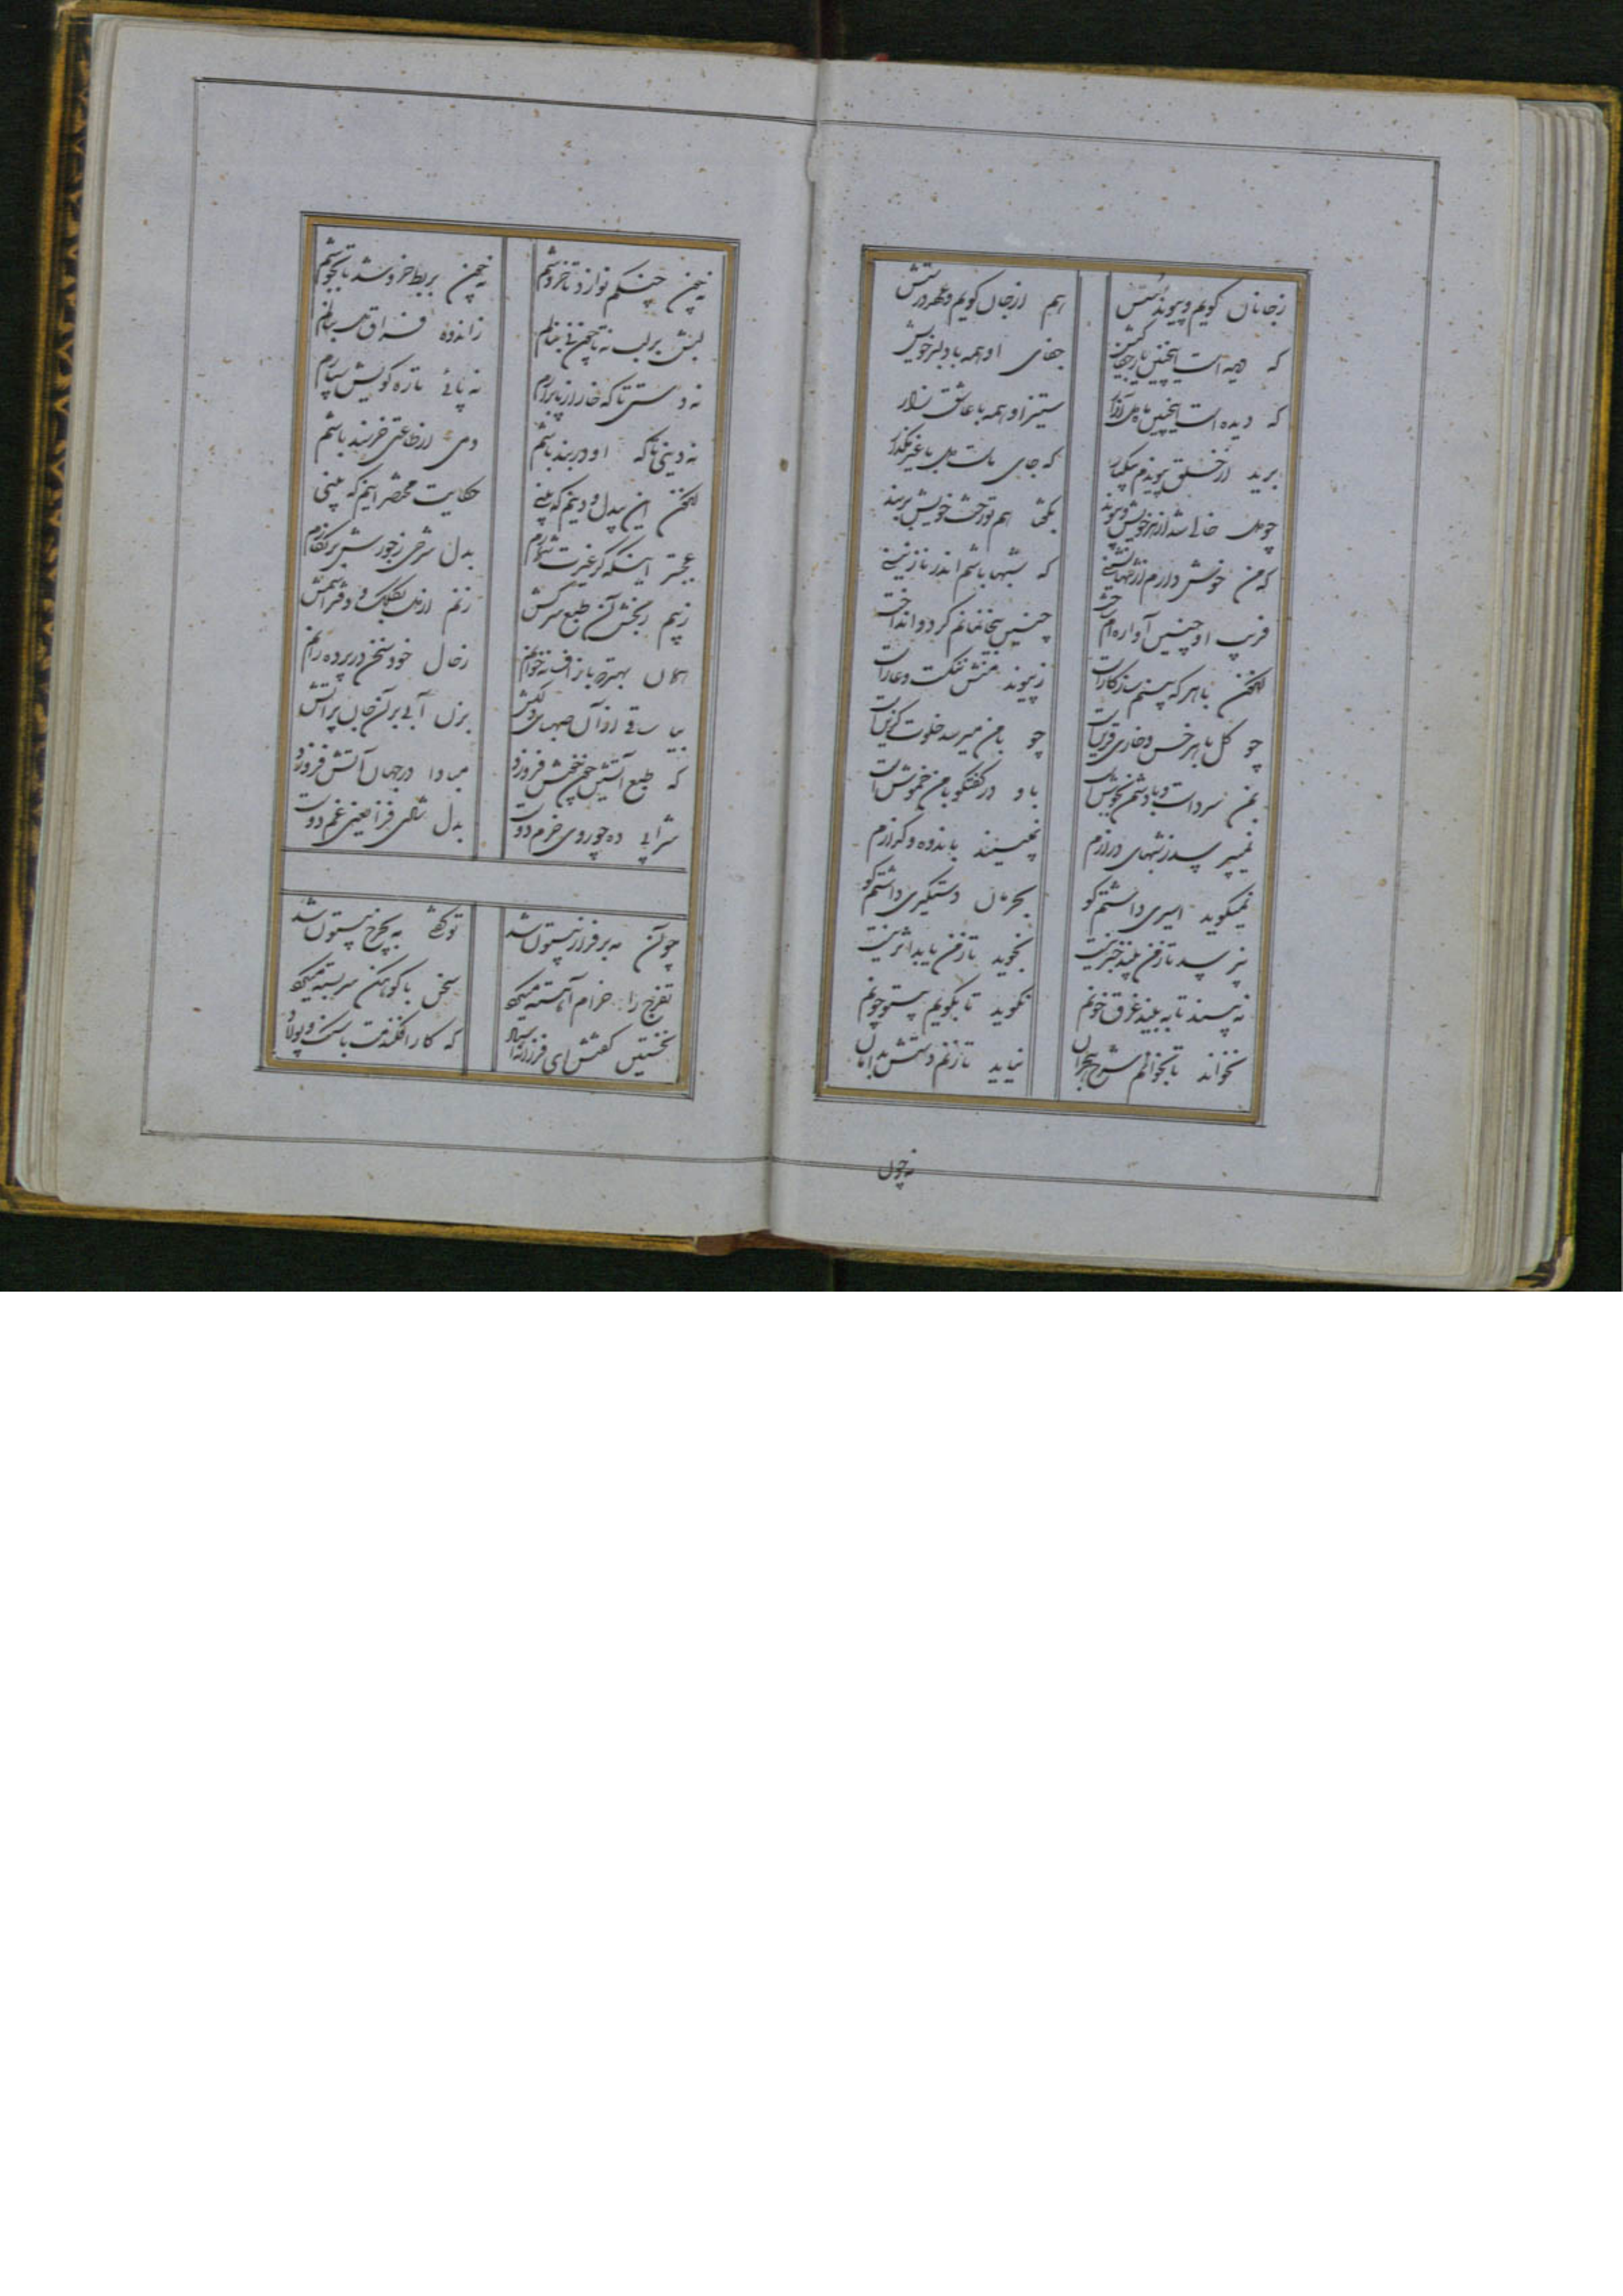 ز جانان گویم و پیوند سستش هم از جان گویم و عهد درستش
که دیده است اینچنین یار جفا کیش جفای او همه با دلبر خویش
که دیده است اینچنین ماه دل آزار ستیز او همه با عاشق زار
برید از خلق پیوندم بیکبار که جای ماست دل با غیر مگذار
چو دل خالی شد از هر خویش و پیوند بگفتا هم تو رخت خویش بربند
که من خوش دارم از تنها نشینی که تنها باشم اندر نازنینی
فریب او چنین آواره ام ساخت چنین بیخانمانم کرد و انداخت
لیکن با هر که بینم سازگار است ز پیوند منش ننگست و عار است
چو گل با هر خس و خاری قرین است چو با من میرسد خلوت گزین است
بمن سرد است و با دشمن بجوش است باو در گفتگو با من خموش است
نمیپرسد ز شبهای درازم نمیبیند باندوه و گدازم
نمیگوید اسیری داشتم کو بحرمان دستگیری داشتم کو
نپرسد تا ز من بیند خبر نیست نجوید تا ز من یابد اثر نیست
نه بیند تا به بیند غرق خونم نگوید تا بگویم بیتو چونم
نخواند تا بخوانم شرح هجران نیاید تا زنم دستش بدامان
نه چون
نه چون چنگم نوازد تا خروشم نه چون بربط خروشد تا بجوشم
لبش بر لب نه تا چون نی بنالم ز اندوه فراق وی بنالم
نه دستی تا که خار از پا برآرم نه پائی تا ره کویش سپارم
نه دینی تا که او در بند باشم دمی از طاعتی خرسند باشم
این بیدل و دینم که بینی حکایت مختصر اینم که بینی
عجبتر اینکه گر غیرت شمارم بدل شرحی ز جورش بر نگارم
ز بیم رنجش آن طبع سرکش زنم از نی کلک و دفتر آتش
همان بهتر که باز افسانه خوانم ز حال خود سخن در پرده رانم
بیا ساقی از آن صهبای دلکش بزن آبی برین جان پر آتش
که طبع آتشین چون خوش فروزد مبادا در جهان آتش فروزد
شرابی ده چو روی خرم دوست بدل شادی فزا یعنی غم دوست
چو آن مه بر فراز بیستون شد تو گفتی مه بچرخ بیستون شد
تفرج را خرام آهسته میکرد سخن با کوهکن سربسته میکرد
نخستین گفتش ای فرزانه استاد که کار افکنده ات با سنگ و پولاد